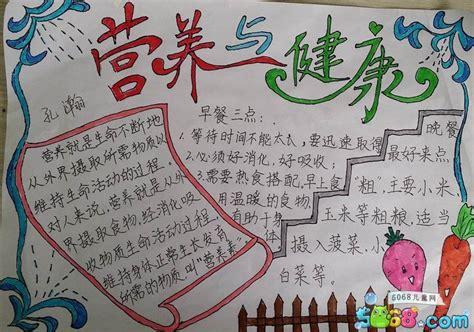 营养与健康
孔瀚
营养就是生命不断地
从外界摄取所需物质以
维持生命活动的过程。
对人来说，营养就是从外
界摄取食物，经消化吸
收物质生命活动过程，
维持身体正常生长发育
所需的物质，叫"营养素"
早餐三点：
1.等待时间不能太久，要迅速取得
2.必须好消化，好吸收；
3.需要热食搭配，早上食
用温暖的食物，
有助于身
体
晚餐
最好来点
"粗"，主要小米
玉米等粗粮，适当
摄入菠菜，小
白菜等。
5068儿童网
5068.com